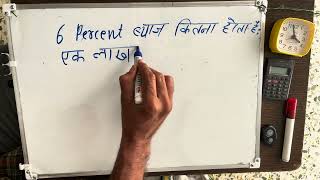 6 Percent ब्याज कितना होता है,
एक लाख